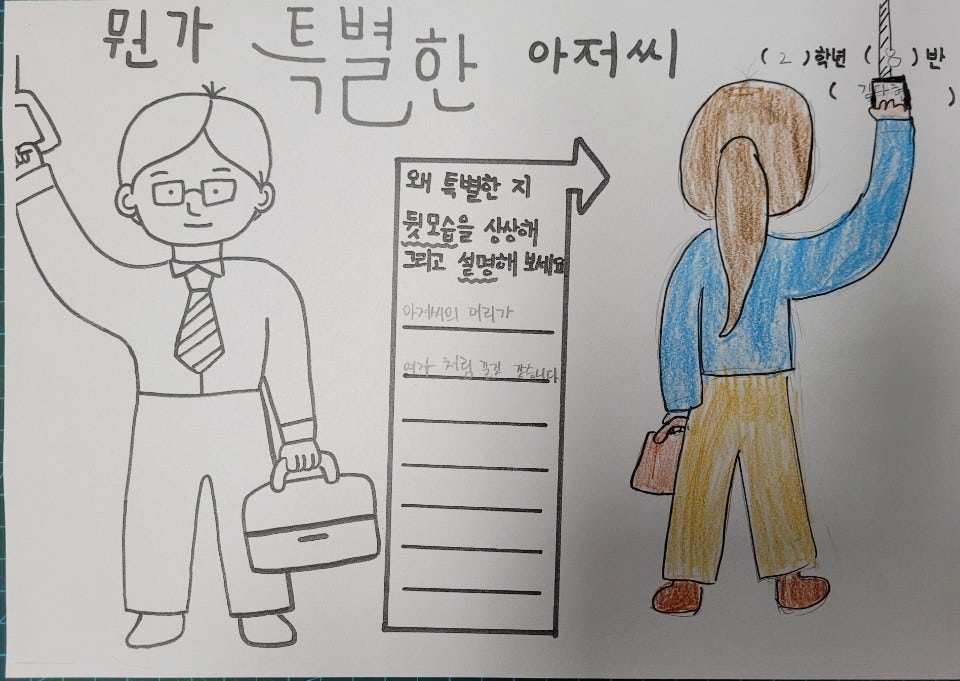 뭔가 특별한 아저씨
( 2 )학년 ( 8 )반
( 김다현 )
왜 특별한 지
뒷모습을 상상해
그리고 설명해 보세요
아저씨의 머리가
여자 처럼 긴것 같습니다